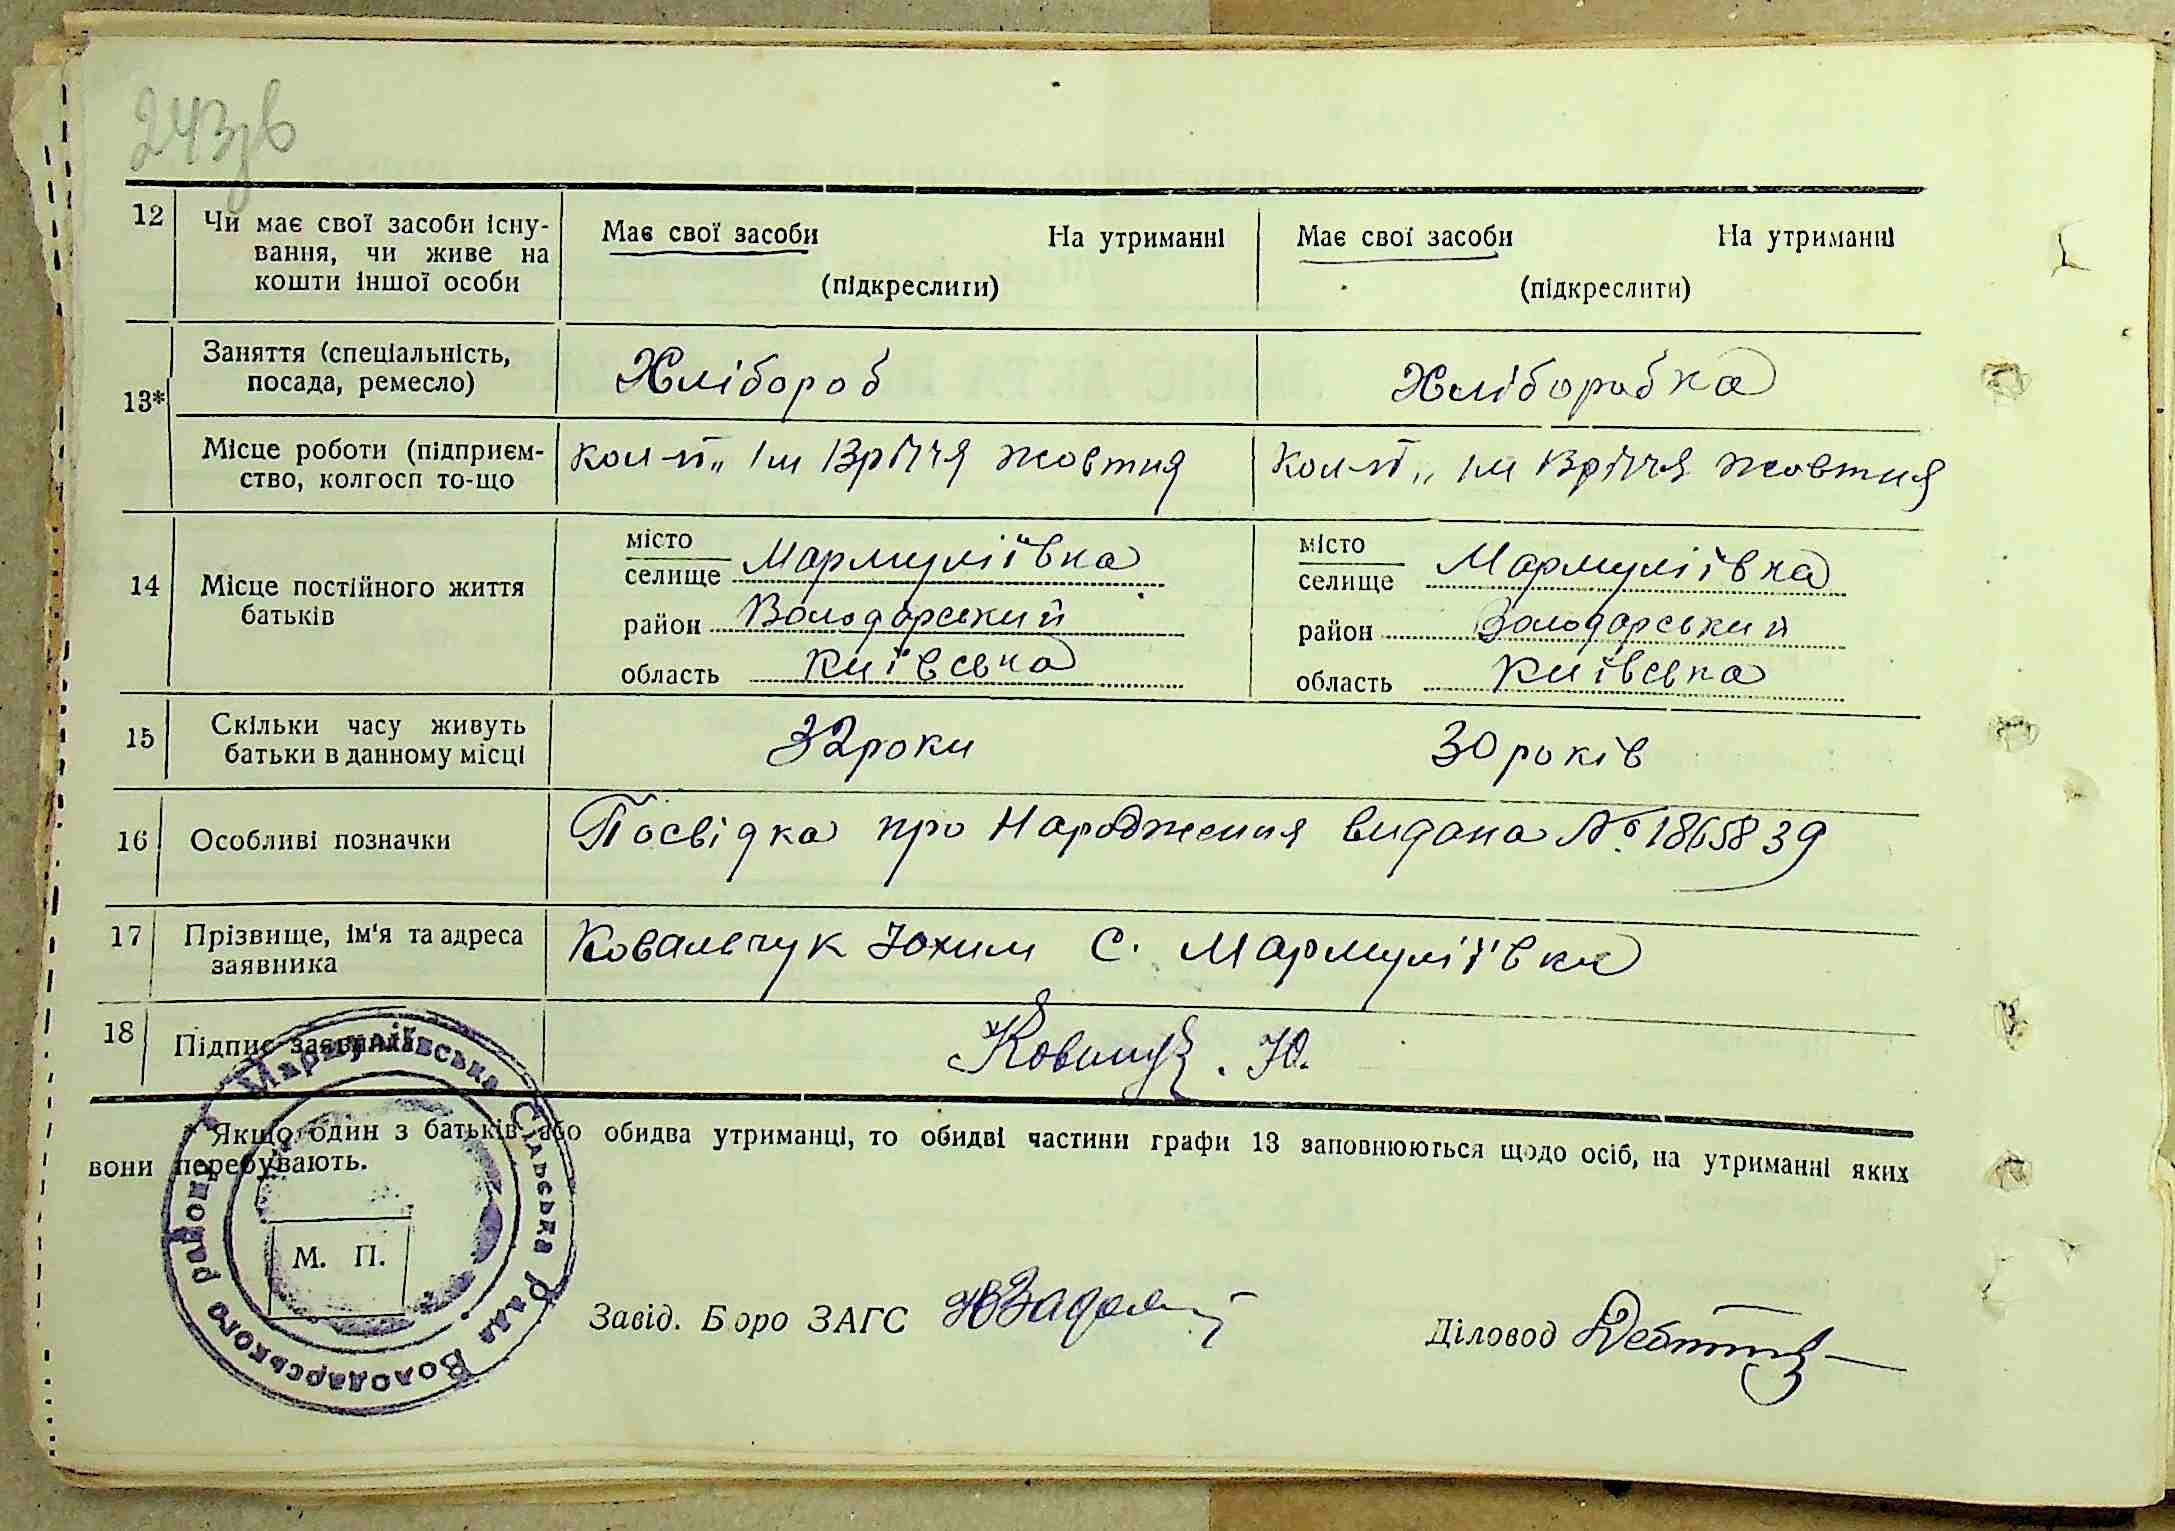 243зв
12 Чи має свої засоби існу- Має свої засоби На утриманні Має свої засоби На утриманні
вання, чи живе на
кошти іншої особи (підкреслити) (підкреслити)
13* Заняття (спеціальність, Хлібороб Хліборобка
посада, ремесло)
Місце роботи (підприєм- Кол-п „ Ім 13 річчя жовтня Кол-п „ Ім 13 річчя жовтня
ство, колгосп то-що
14 Місце постійного життя місто місто
батьків селище Мармуліївка селище Мармуліївка
район Володарський район Володарський
область Київська область Київська
15 Скільки часу живуть 32 роки 30 років
батьки в данному місці
16 Особливі позначки Посвідка про Народження видана № 1865839
17 Прізвище, ім'я та адреса Ковальчук Юхим С. Мармуліївка
заявника
18 Підпис заявника Ковальчук . Ю.
* Якщо один з батьків або обидва утриманці, то обидві частини графи 13 заповнюються щодо осіб, на утриманні яких
вони перебувають.
Мармуліївська Сільська Рада Володарського району
М. П.
Завід. Бюро ЗАГС
Діловод